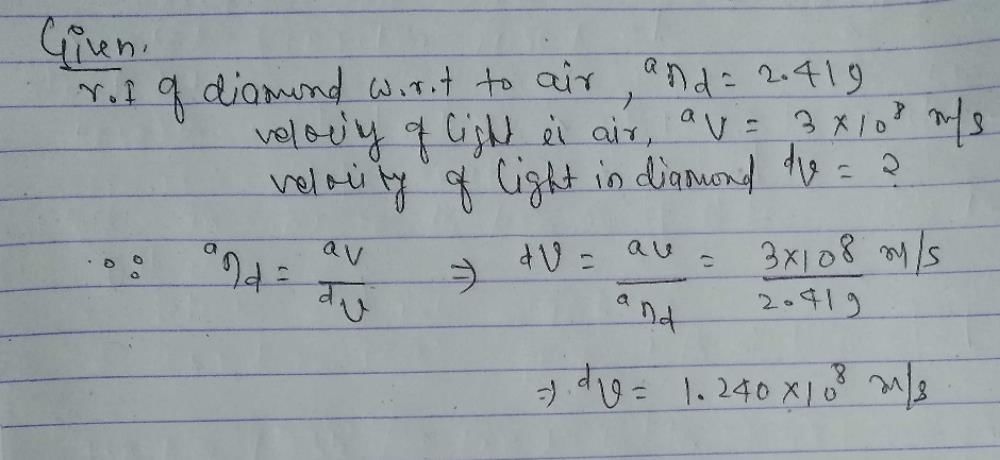 Given.
r.I of diamond w.r.t to air, ᵃηd = 2.419
velocity of light in air, ᵃv = 3 × 10⁸ m/s
velocity of light in diamond ᵈv = ?
∵ ᵃηd = ᵃv / ᵈv ⇒ ᵈv = ᵃv / ᵃηd = 3×10⁸ m/s / 2.419
⇒ ᵈv = 1.240 × 10⁸ m/s